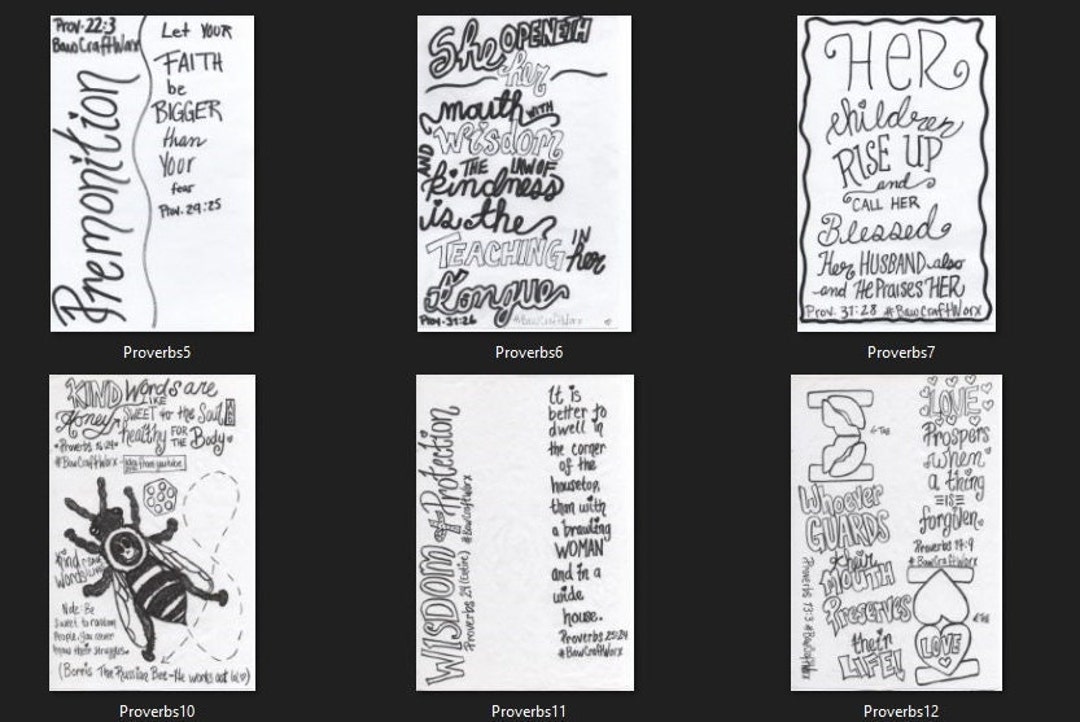 Prov. 22:3
BawCraftWorx
Premonition
Let YOUR
FAITH
be
BIGGER
than
Your
fear
Prov. 29:25
Proverbs5
She OPENETH
her
mouth WITH
Wisdom
AND THE LAW OF
kindness
is the
TEACHING IN
her
Tongue
Prov. 31:26 #BawCraftWorx
Proverbs6
HER
children
RISE UP
and
CALL HER
Blessed
Her HUSBAND also
and He Praises HER
Prov. 31:28 #BawCraftWorx
Proverbs7
KIND Words are
LIKE
Honey SWEET to the Soul
AND
healthy FOR THE Body
Proverbs 16:24
#BawCraftWorx - idea from youtube
Kind
Words
Note: Be
Sweet to random
People, you never
know their struggles.
(Borris The Russian Bee-He works out lol)
Proverbs10
WISDOM & Protection
Proverbs 24 (Entire) #BawCraftWorx
It is
better to
dwell in
the corner
of the
housetop,
than with
a brawling
WOMAN
and in a
wide
house.
Proverbs 25:24
#BawCraftWorx
Proverbs11
TAB
Whoever
GUARDS
their
MOUTH
Preserves
their
LIFE!
Proverbs 13:3 #BawCraftWorx
LOVE
Prospers
when
a thing
IS
forgiven.
Proverbs 17:9
#BawCraftWorx
TAB
LOVE
Proverbs12